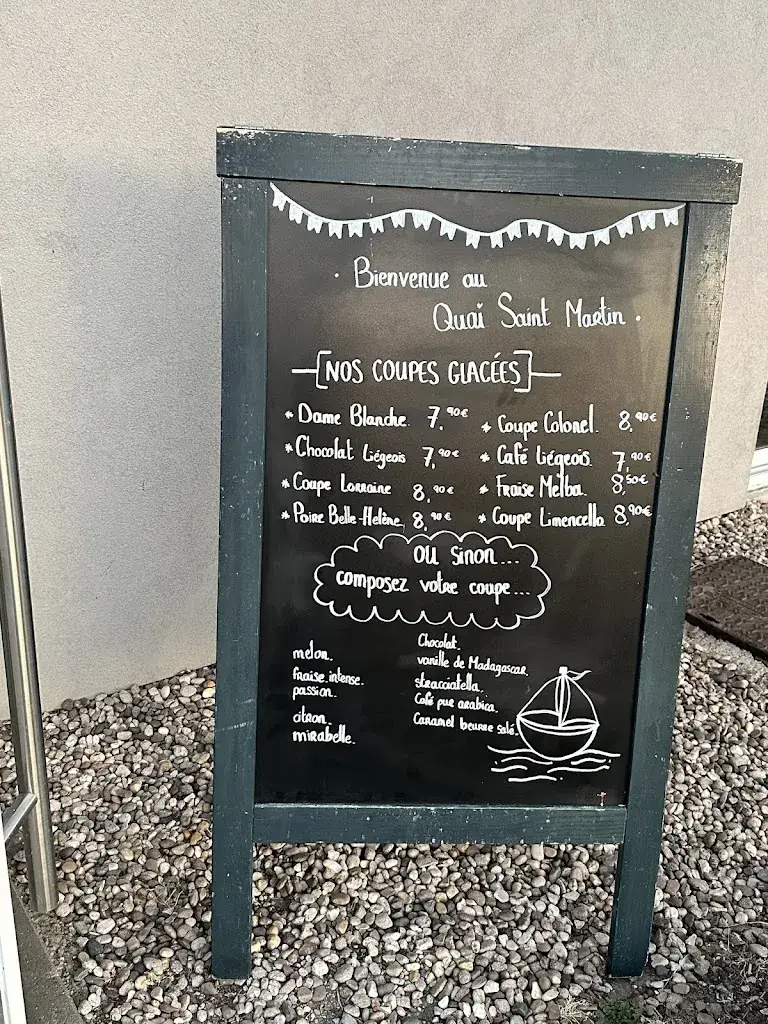 · Bienvenue au
Quai Saint Martin ·
[NOS COUPES GLACÉES]
* Dame Blanche 7,90€
* Chocolat Liégeois 7,90€
* Coupe Lorraine 8,90€
* Poire Belle-Helène 8,90€
* Coupe Colonel 8,90€
* Café Liégeois 7,90€
* Fraise Melba 8,50€
* Coupe Limencello 8,90€
OU Sinon...
composez votre coupe...
melon.
fraise intense.
passion.
citron.
mirabelle.
Chocolat.
vanille de Madagascar.
stracciatella.
Café pur arabica.
Caramel beurre salé.